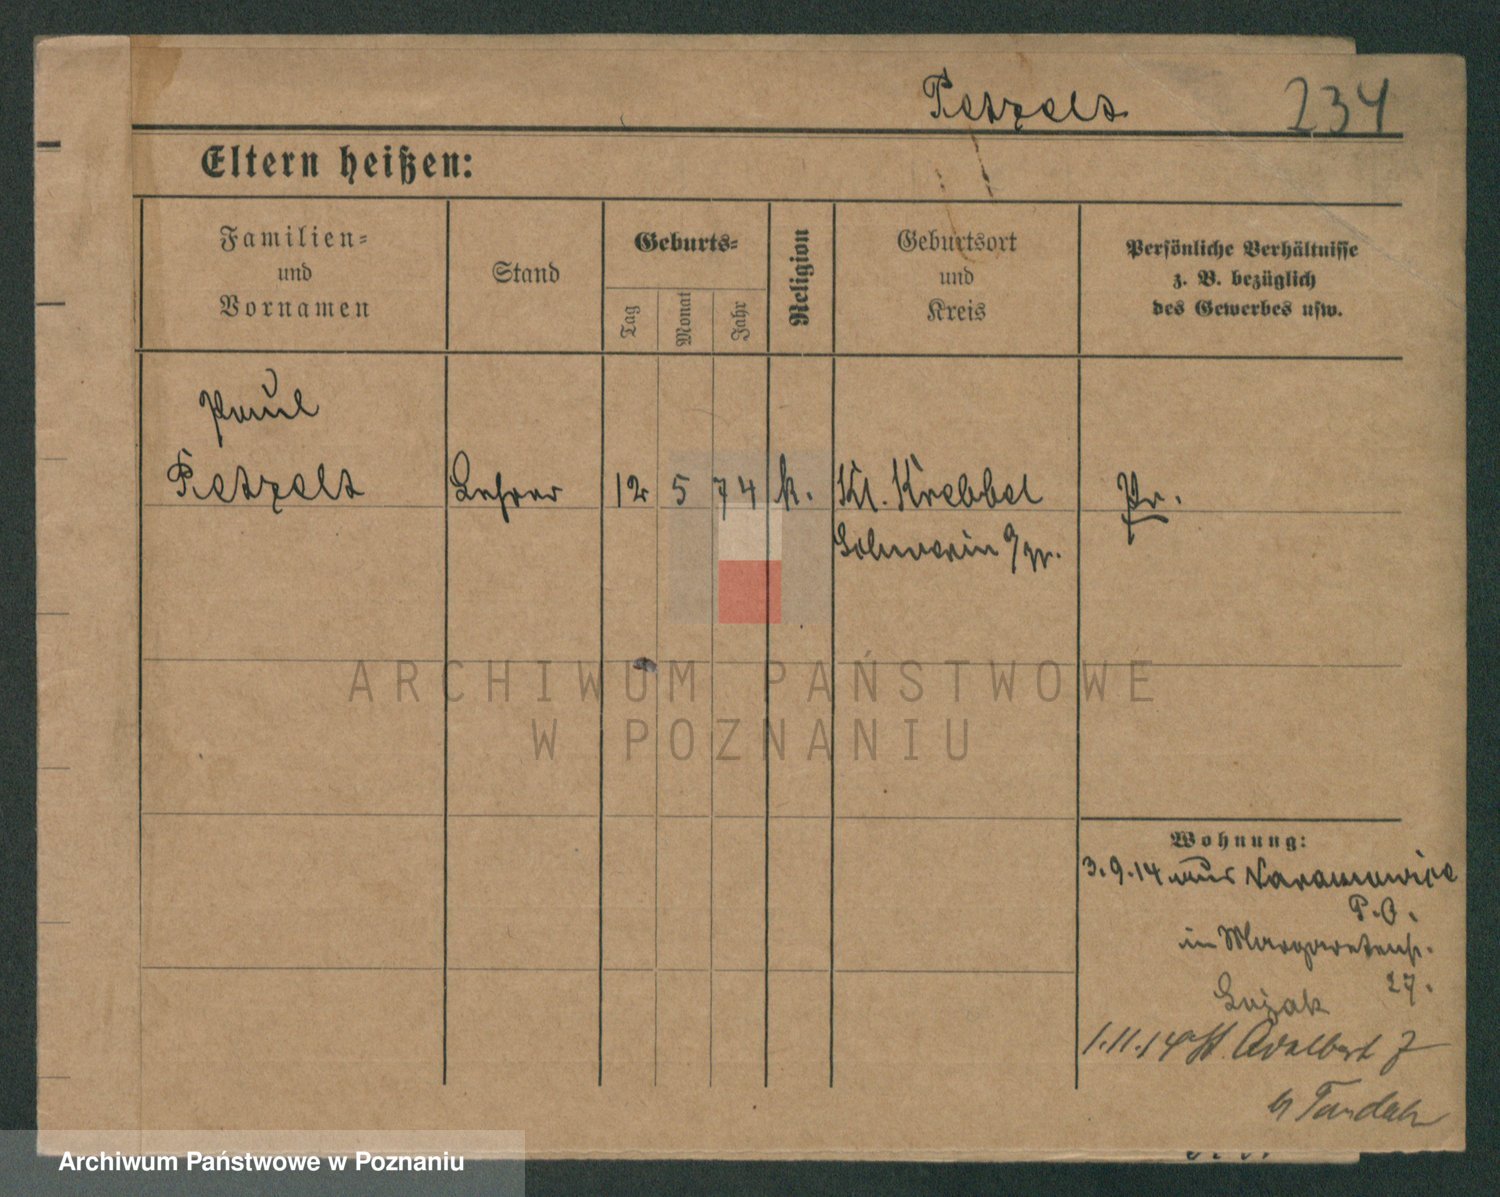 Petzelt 234
Eltern heißen:
Familien-
und
Vornamen
Stand
Geburts-
Tag
Monat
Jahr
Religion
Geburtsort
und
Kreis
Persönliche Verhältnisse
z. B. bezüglich
des Gewerbes usw.
Paul
Petzelt Lehrer 12 5 74 k. Kl. Krebbel Pr.
Schwerin a/W.
ARCHIWUM PAŃSTWOWE
W POZNANIU
Wohnung:
3.9.14 aus Naramowice
P.O.
in Margaretenstr.
27.
1.11.14 St. Adalbert 7
Archiwum Państwowe w Poznaniu